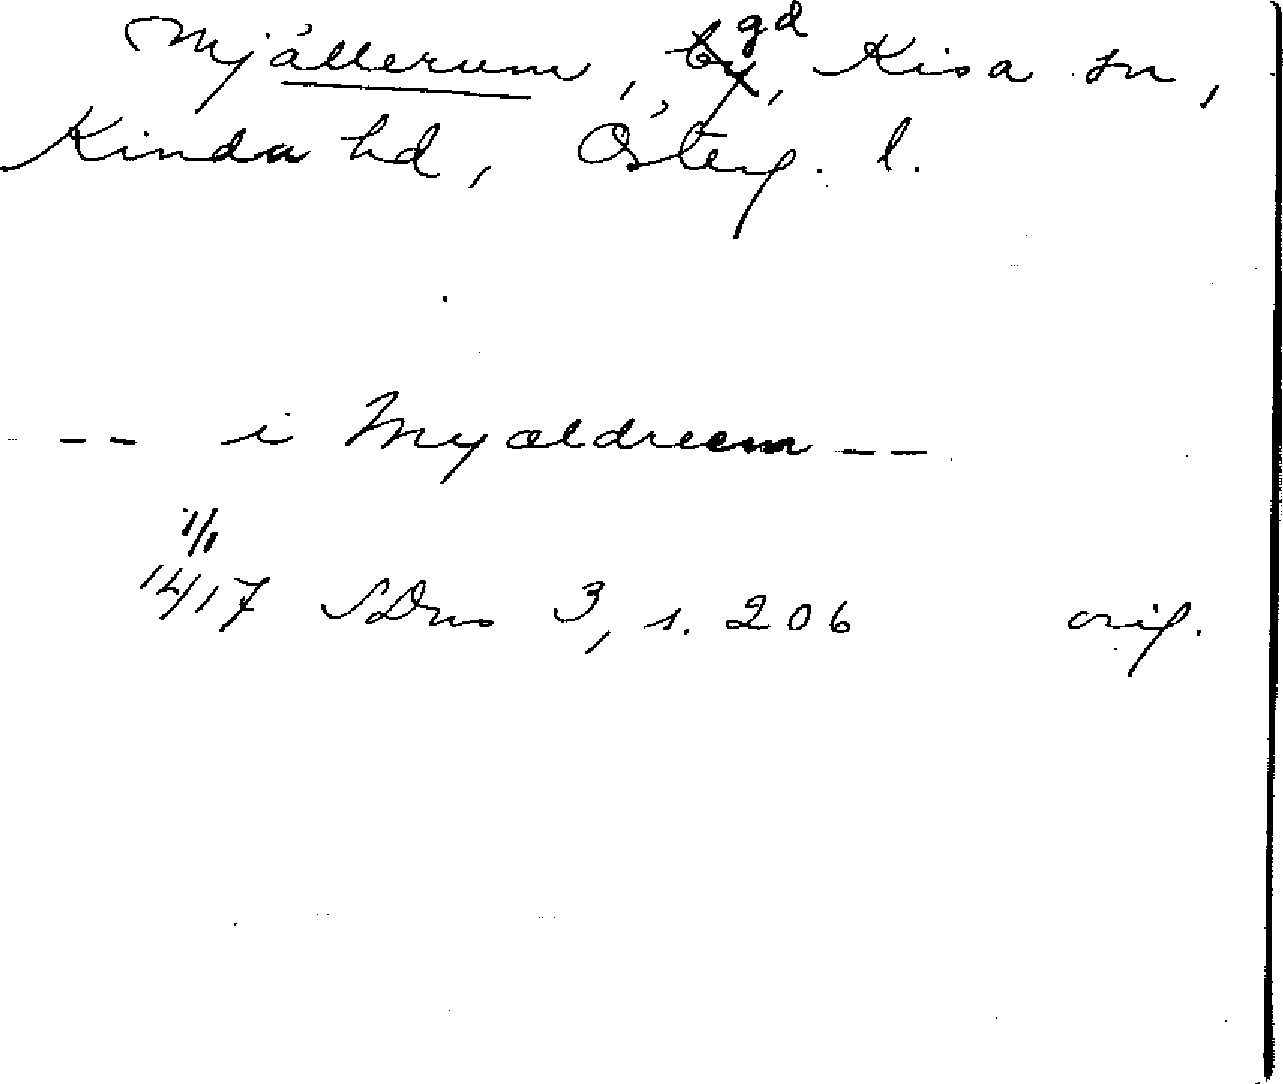 Mjällerum, gd, Kisa sn,
Kinda hd, Österg. l.
-- i Myældreem --
1/1
1417 SDns 3, s. 206 orig.